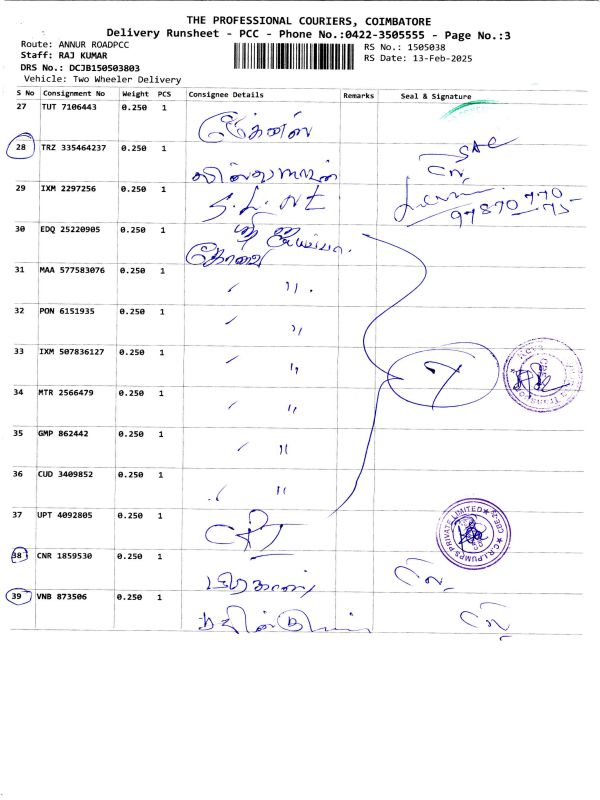 THE PROFESSIONAL COURIERS, COIMBATORE
Delivery Runsheet - PCC - Phone No.:0422-3505555 - Page No.:3
Route: ANNUR ROADPCC RS No.: 1505038
Staff: RAJ KUMAR RS Date: 13-Feb-2025
DRS No.: DCJB150503803
Vehicle: Two Wheeler Delivery
S No Consignment No Weight PCS Consignee Details Remarks Seal & Signature
27 TUT 7106443 0.250 1
28 TRZ 335464237 0.250 1 SAC
29 IXM 2297256 0.250 1 S.L. NE 97870 770 75
30 EDQ 25220905 0.250 1
கோவை
31 MAA 577583076 0.250 1 " .
32 PON 6151935 0.250 1 "
33 IXM 507836127 0.250 1 " 7
34 MTR 2566479 0.250 1 "
35 GMP 862442 0.250 1 "
36 CUD 3409852 0.250 1 "
37 UPT 4092805 0.250 1 CRI C.R.I.PUMPS PRIVATE LIMITED
38 CNR 1859530 0.250 1
39 VNB 873506 0.250 1